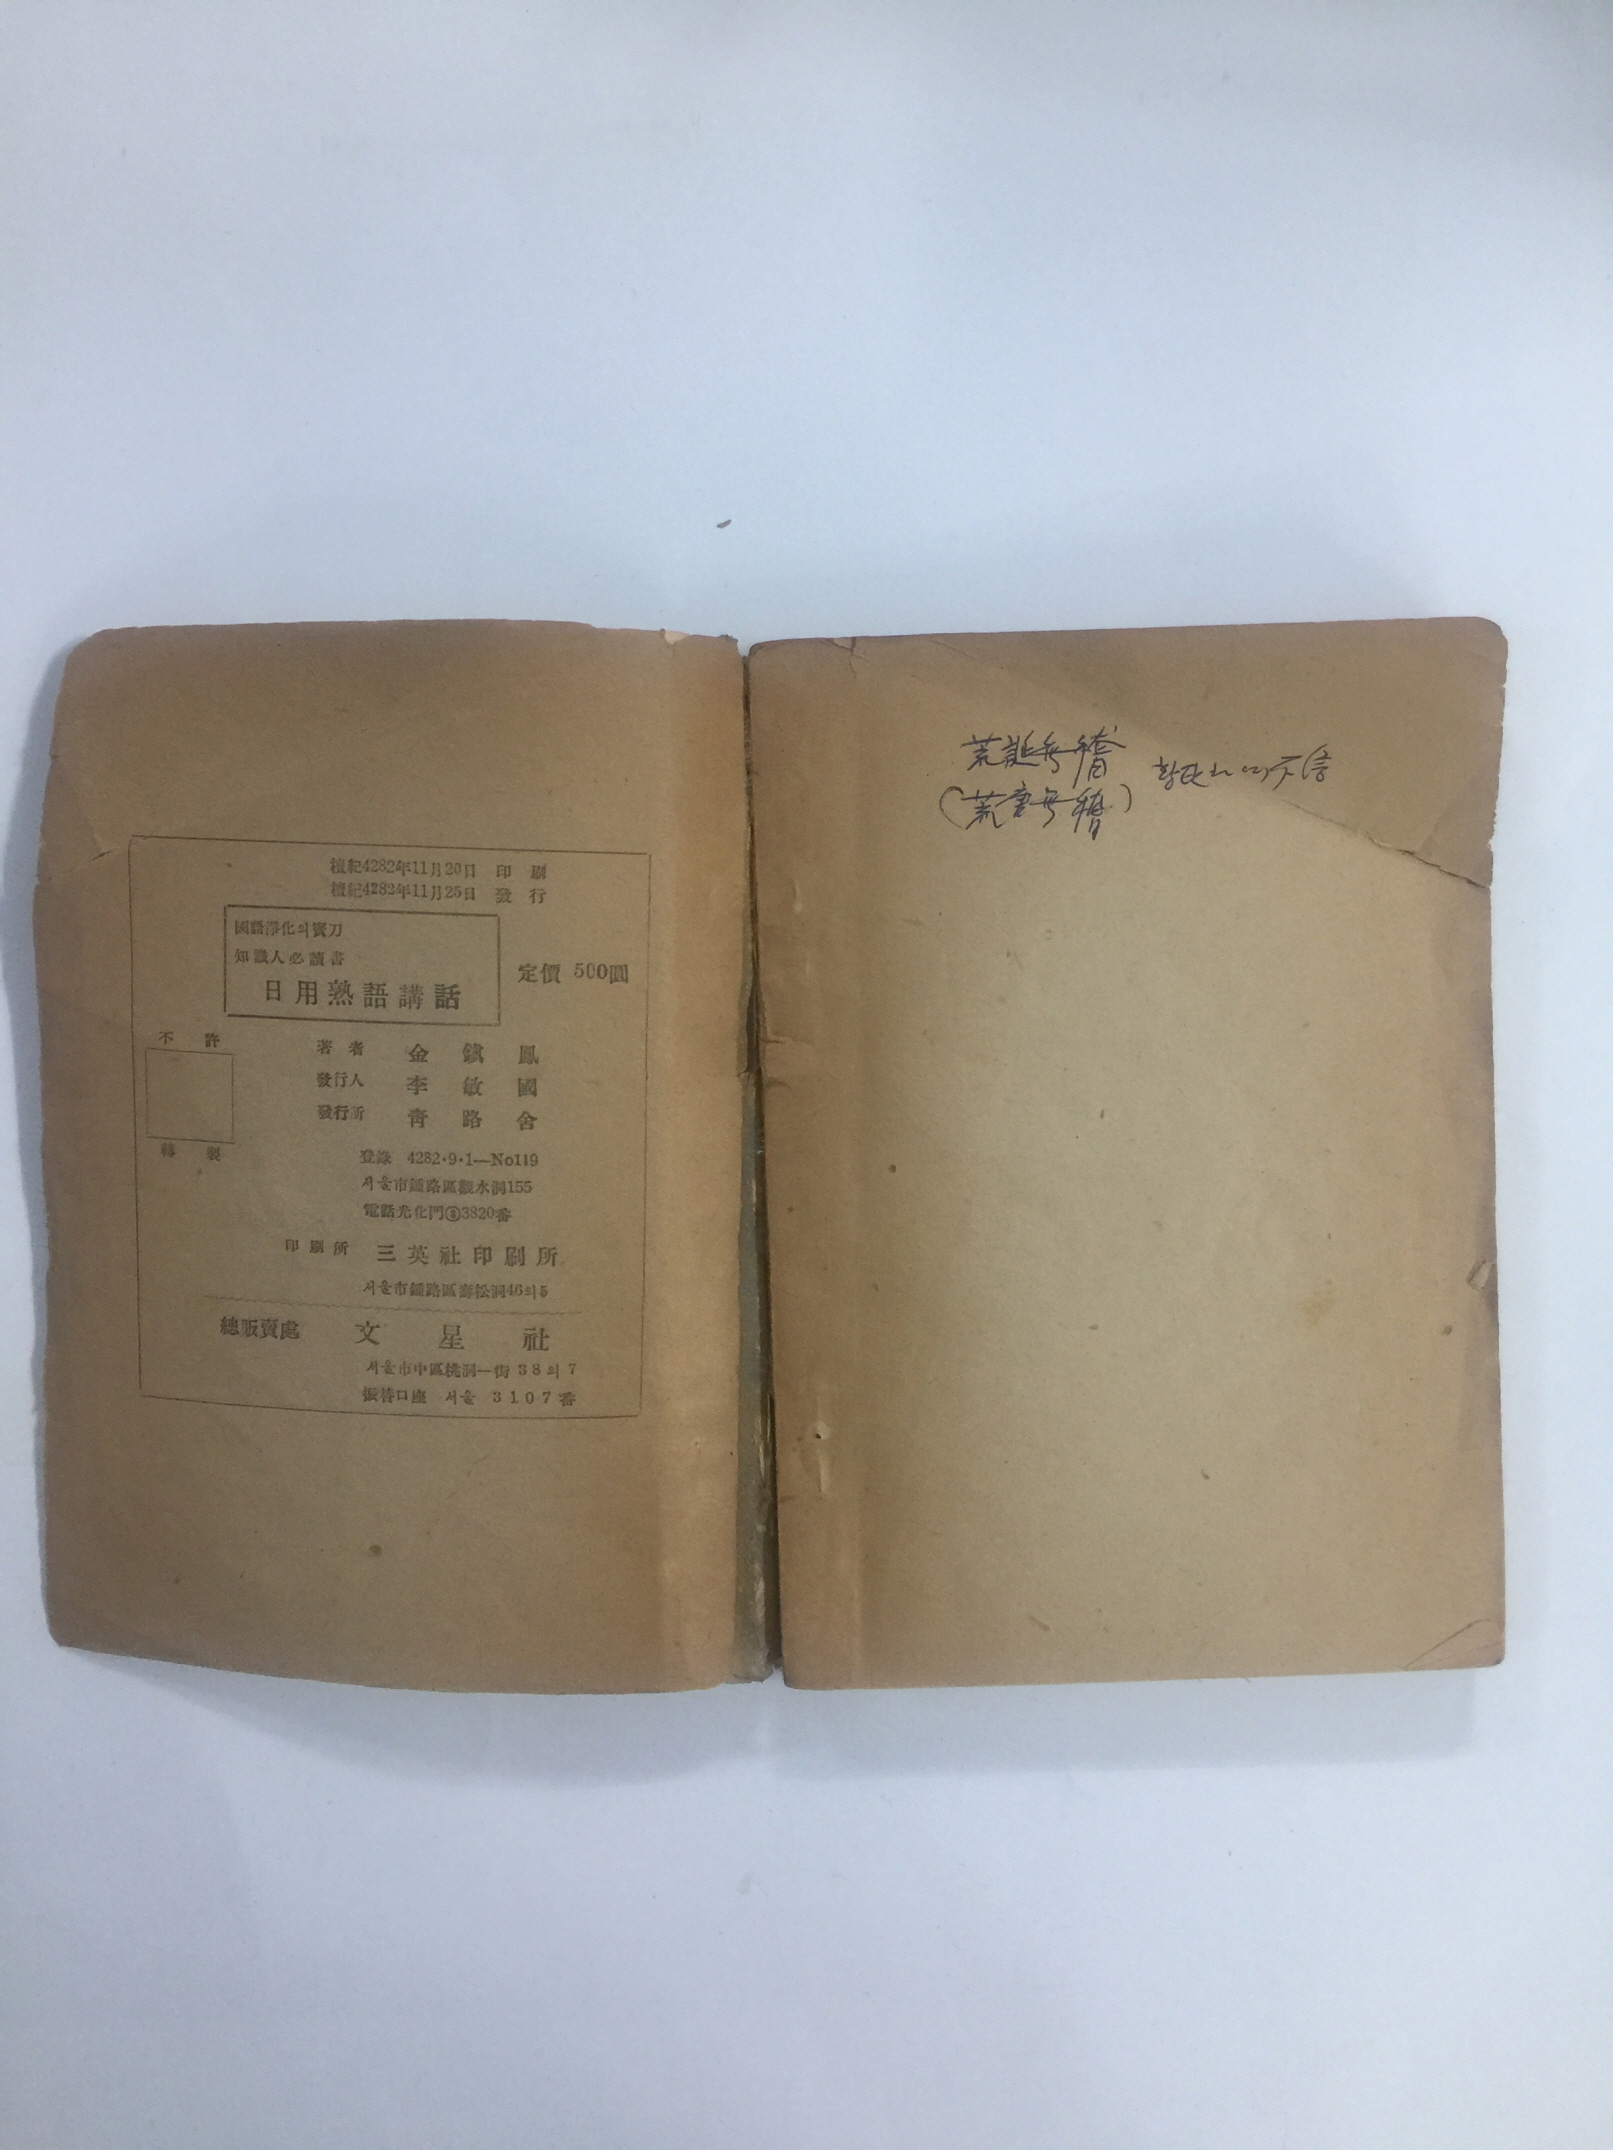 檀紀4282年11月20日 印刷
檀紀4282年11月25日 發行
國語淨化의寳刀
知識人必讀書
日用熟語講話
定價 500圓
不許
轉製
著者 金鎭鳳
發行人 李敏國
發行所 靑路舍
登錄 4282·9·1—No119
서울市鍾路區觀水洞155
電話光化門③3820番
印刷所 三英社印刷所
서울市鍾路區壽松洞46의5
總販賣處 文星社
서울市中區桃洞一街38의7
振替口座 서울 3107番
荒誕無稽
(荒唐無稽)